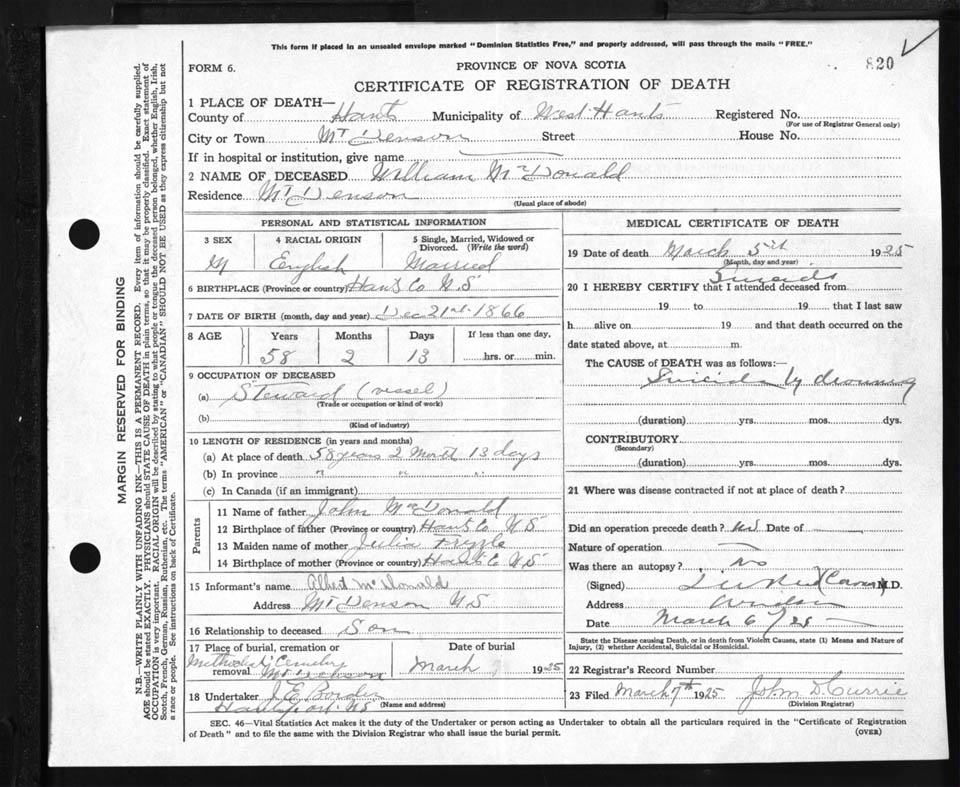 This form if placed in an unsealed envelope marked "Dominion Statistics Free," and properly addressed, will pass through the mails "FREE."
820
FORM 6.
PROVINCE OF NOVA SCOTIA
CERTIFICATE OF REGISTRATION OF DEATH
1 PLACE OF DEATH—
County of Hants Municipality of West Hants Registered No.
(For use of Registrar General only)
City or Town Mt Denson Street House No.
If in hospital or institution, give name
2 NAME OF DECEASED William McDonald
Residence Mt Denson
(Usual place of abode)
PERSONAL AND STATISTICAL INFORMATION
3 SEX 4 RACIAL ORIGIN 5 Single, Married, Widowed or Divorced. (Write the word)
M English Married
6 BIRTHPLACE (Province or country) Hants Co N.S
7 DATE OF BIRTH (month, day and year) Dec 21st 1866
8 AGE Years Months Days If less than one day,
58 2 13 hrs. or min.
9 OCCUPATION OF DECEASED
(a) Steward (vessel)
(Trade or occupation or kind of work)
(b)
(Kind of industry)
10 LENGTH OF RESIDENCE (in years and months)
(a) At place of death 58 years 2 Month 13 days
(b) In province " " "
(c) In Canada (if an immigrant)
Parents
11 Name of father John McDonald
12 Birthplace of father (Province or country) Hants Co N S
13 Maiden name of mother Julia
14 Birthplace of mother (Province or country) Hants Co N S
15 Informant's name Albert McDonald
Address Mt Denson N.S
16 Relationship to deceased Son
17 Place of burial, cremation or removal Methodist Cemetery Mt Denson
Date of burial
March 1925
18 Undertaker J. E. Borden
Hantsport N.S
(Name and address)
MEDICAL CERTIFICATE OF DEATH
19 Date of death March 5th 1925
(Month, day and year)
Suicide
20 I HEREBY CERTIFY that I attended deceased from
19 to 19 that I last saw
h alive on 19 and that death occurred on the
date stated above, at m.
The CAUSE of DEATH was as follows:—
Suicide by drowning
(duration) yrs. mos. dys.
CONTRIBUTORY
(Secondary)
(duration) yrs. mos. dys.
21 Where was disease contracted if not at place of death?
Did an operation precede death? Date of
Nature of operation
Was there an autopsy? No
(Signed) M.D.
Address Windsor
Date March 6/25
State the Disease causing Death, or in death from Violent Causes, state (1) Means and Nature of Injury, (2) whether Accidental, Suicidal or Homicidal.
22 Registrar's Record Number
23 Filed March 7th 1925 John D. Currie
(Division Registrar)
SEC. 46—Vital Statistics Act makes it the duty of the Undertaker or person acting as Undertaker to obtain all the particulars required in the "Certificate of Registration
of Death" and to file the same with the Division Registrar who shall issue the burial permit. (OVER)
MARGIN RESERVED FOR BINDING
N.B.—WRITE PLAINLY WITH UNFADING INK—THIS IS A PERMANENT RECORD. Every item of information should be carefully supplied.
AGE should be stated EXACTLY. PHYSICIANS should STATE CAUSE OF DEATH in plain terms, so that it may be properly classified. Exact statement of
OCCUPATION is very important. RACIAL ORIGIN will be described by stating to what people or tongue the deceased person belonged, whether English, Irish,
Scotch, French, German, Russian, Ruthenian, etc. The terms "AMERICAN" or "CANADIAN" SHOULD NOT BE USED as they express citizenship but not
a race or people. See instructions on back of Certificate.